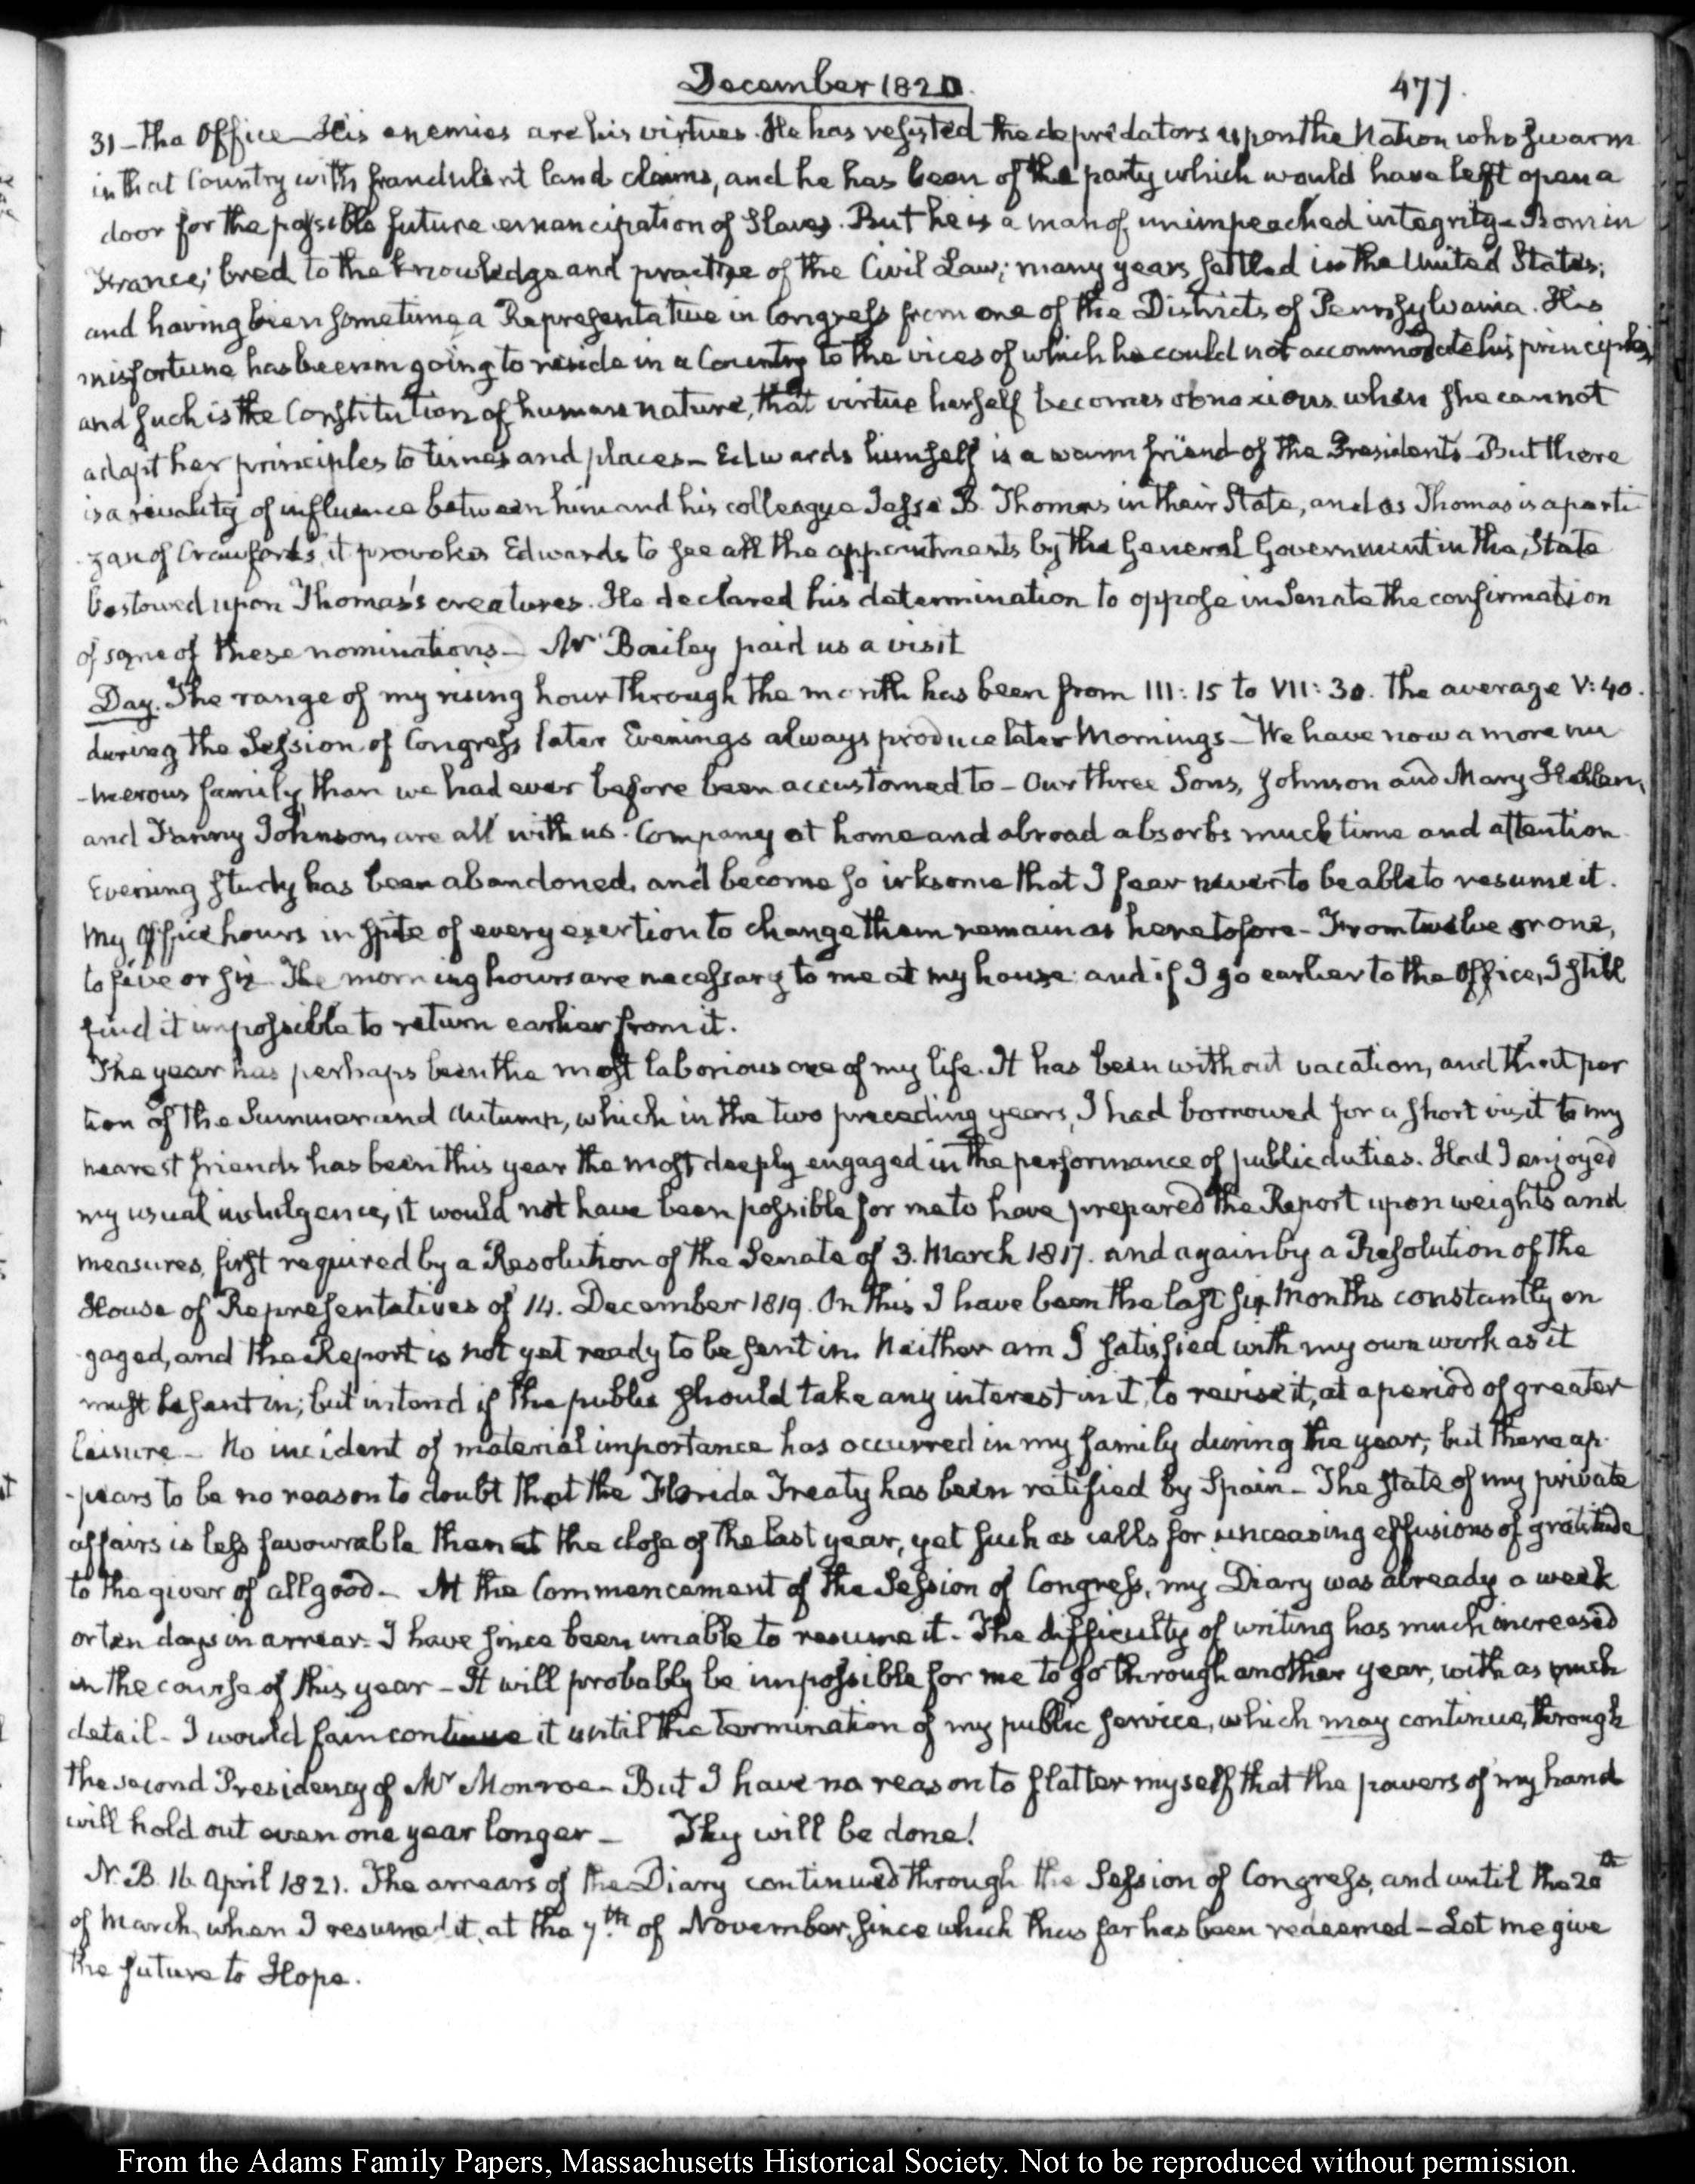 December 1820.
477.
31 – the Office – His enemies are his virtues. He has resisted the depredators upon the Nation who swarm
in that Country with fraudulent land claims, and he has been of the party which would have left open a
door for the possible future emancipation of Slaves. But he is a man of unimpeached integrity – Born in
France; bred to the knowledge and practise of the Civil Law; many years settled in the United States;
and having been sometime a Representative in Congress from one of the Districts of Pennsylvania. His
misfortune has been in going to reside in a Country to the vices of which he could not accommodate his principles,
and such is the Constitution of human nature, that virtue herself becomes obnoxious when she cannot
adapt her principles to times and places – Edwards himself is a warm friend of the Presidents – But there
is a rivality of influence between him and his colleague Jesse B. Thomas in their State, and as Thomas is a parti
-zan of Crawford's, it provokes Edwards to see all the appointments by the General Government in the State
bestowed upon Thomas's creatures. He declared his determination to oppose in Senate the confirmation
of some of these nominations – Mr Bailey paid us a visit
Day. The range of my rising hour through the month has been from III: 15 to VII: 30. the average V: 40.
during the Session of Congress later Evenings always produce later Mornings – We have now a more nu
-merous family, than we had ever before been accustomed to – Our three Sons, Johnson and Mary Hellen,
and Fanny Johnson, are all with us. Company at home and abroad absorbs much time and attention
Evening study has been abandoned, and become so irksome that I fear never to be able to resume it.
My Office hours in spite of every exertion to change them remain as heretofore – From twelve or one,
to five or six – The morning hours are necessary to me at my house: and if I go earlier to the Office, I still
find it impossible to return earlier from it.
The year has perhaps been the most laborious one of my life. It has been without vacation, and that por
tion of the Summer and Autumn, which in the two preceding years, I had borrowed for a short visit to my
nearest friends has been this year the most deeply engaged in the performance of public duties. Had I enjoyed
my usual indulgence, it would not have been possible for me to have prepared the Report upon weights and
measures, first required by a Resolution of the Senate of 3. March 1817. and again by a Resolution of the
House of Representatives of 14. December 1819. On this I have been the last six Months constantly en
gaged, and the Report is not yet ready to be sent in. Neither am I satisfied with my own work as it
must be sent in; but intend if the public should take any interest in it, to revise it, at a period of greater
leisure – No incident of material importance has occurred in my family during the year; but there ap
-pears to be no reason to doubt that the Florida Treaty has been ratified by Spain – The state of my private
affairs is less favourable than at the close of the last year, yet such as calls for unceasing effusions of gratitude
to the giver of all good – At the Commencement of the Session of Congress, my Diary was already a week
or ten days in arrear. I have since been unable to resume it – The difficulty of writing has much increased
in the course of this year – It will probably be impossible for me to go through another year, with as much
detail – I would fain continue it until the termination of my public service, which may continue, through
the second Presidency of Mr Monroe – But I have no reason to flatter myself that the powers of my hand
will hold out even one year longer – Thy will be done!
N. B. 16. April 1821. The arrears of the Diary continued through the Session of Congress, and until the 20th
of March, when I resumed it, at the 7th. of November, since which thus far has been redeemed – Let me give
the future to Hope.
From the Adams Family Papers, Massachusetts Historical Society. Not to be reproduced without permission.